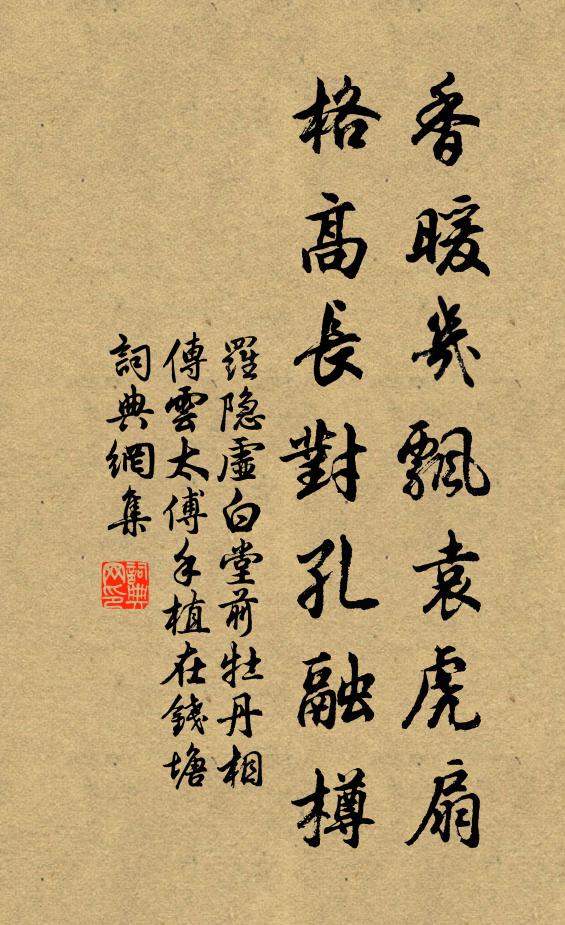 香暖幾飄袁虎扇
格高長對孔融樽
羅隱虛白堂前牡丹相
傳雲太傅手植在錢塘
詞典網集
詞典網印